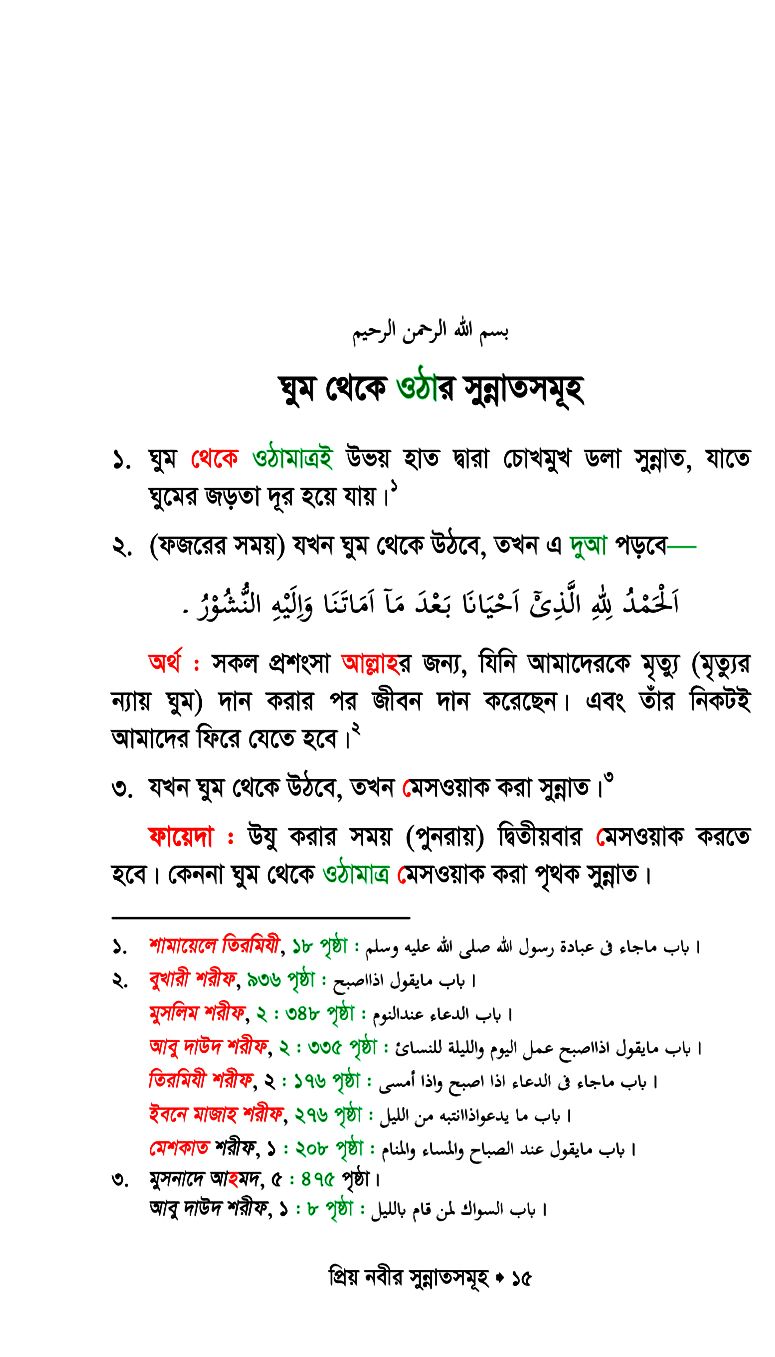 بسم الله الرحمن الرحيم
ঘুম থেকে ওঠার সুন্নাতসমূহ
১. ঘুম থেকে ওঠামাত্রই উভয় হাত দ্বারা চোখমুখ ডলা সুন্নাত, যাতে
ঘুমের জড়তা দূর হয়ে যায়।১
২. (ফজরের সময়) যখন ঘুম থেকে উঠবে, তখন এ দুআ পড়বে—
اَلْحَمْدُ لِلّٰهِ الَّذِىْٓ اَحْيَانَا بَعْدَ مَآ اَمَاتَنَا وَاِلَيْهِ النُّشُوْرُ .
অর্থ : সকল প্রশংসা আল্লাহর জন্য, যিনি আমাদেরকে মৃত্যু (মৃত্যুর
ন্যায় ঘুম) দান করার পর জীবন দান করেছেন। এবং তাঁর নিকটই
আমাদের ফিরে যেতে হবে।২
৩. যখন ঘুম থেকে উঠবে, তখন মেসওয়াক করা সুন্নাত।৩
ফায়েদা : উযু করার সময় (পুনরায়) দ্বিতীয়বার মেসওয়াক করতে
হবে। কেননা ঘুম থেকে ওঠামাত্র মেসওয়াক করা পৃথক সুন্নাত।
১. শামায়েলে তিরমিযী, ১৮ পৃষ্ঠা : باب ماجاء فى عبادة رسول الله صلى الله عليه وسلم ।
২. বুখারী শরীফ, ৯৩৬ পৃষ্ঠা : باب مايقول اذااصبح ।
মুসলিম শরীফ, ২ : ৩৪৮ পৃষ্ঠা : باب الدعاء عندالنوم ।
আবু দাউদ শরীফ, ২ : ৩৩৫ পৃষ্ঠা : باب مايقول اذااصبح عمل اليوم والليلة للنسائ ।
তিরমিযী শরীফ, ২ : ১৭৬ পৃষ্ঠা : باب ماجاء فى الدعاء اذا اصبح واذا أمسى ।
ইবনে মাজাহ শরীফ, ২৭৬ পৃষ্ঠা : باب ما يدعواذاانتبه من الليل ।
মেশকাত শরীফ, ১ : ২০৮ পৃষ্ঠা : باب مايقول عند الصباح والمساء والمنام ।
৩. মুসনাদে আহমদ, ৫ : ৪৭৫ পৃষ্ঠা।
আবু দাউদ শরীফ, ১ : ৮ পৃষ্ঠা : باب السواك لمن قام بالليل ।
প্রিয় নবীর সুন্নাতসমূহ ➧ ১৫